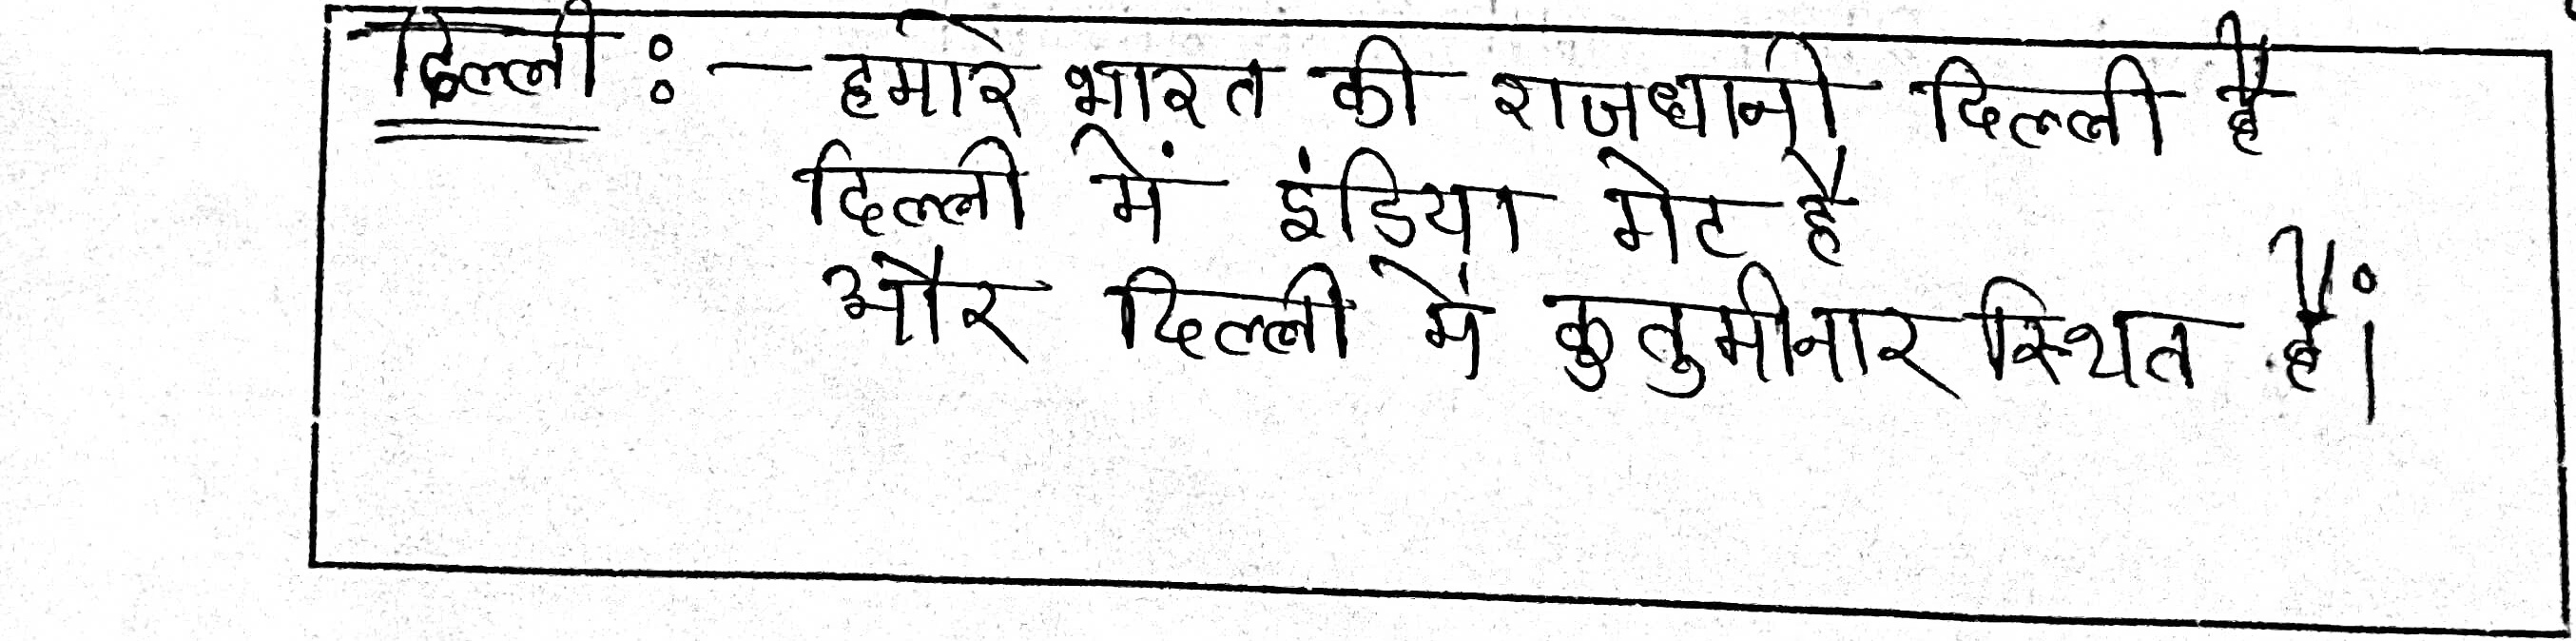 दिल्ली :- हमारे भारत की राजधानी दिल्ली है
दिल्ली में इंडिया गेट है
और दिल्ली में कुतुमीनार स्थित हैं।